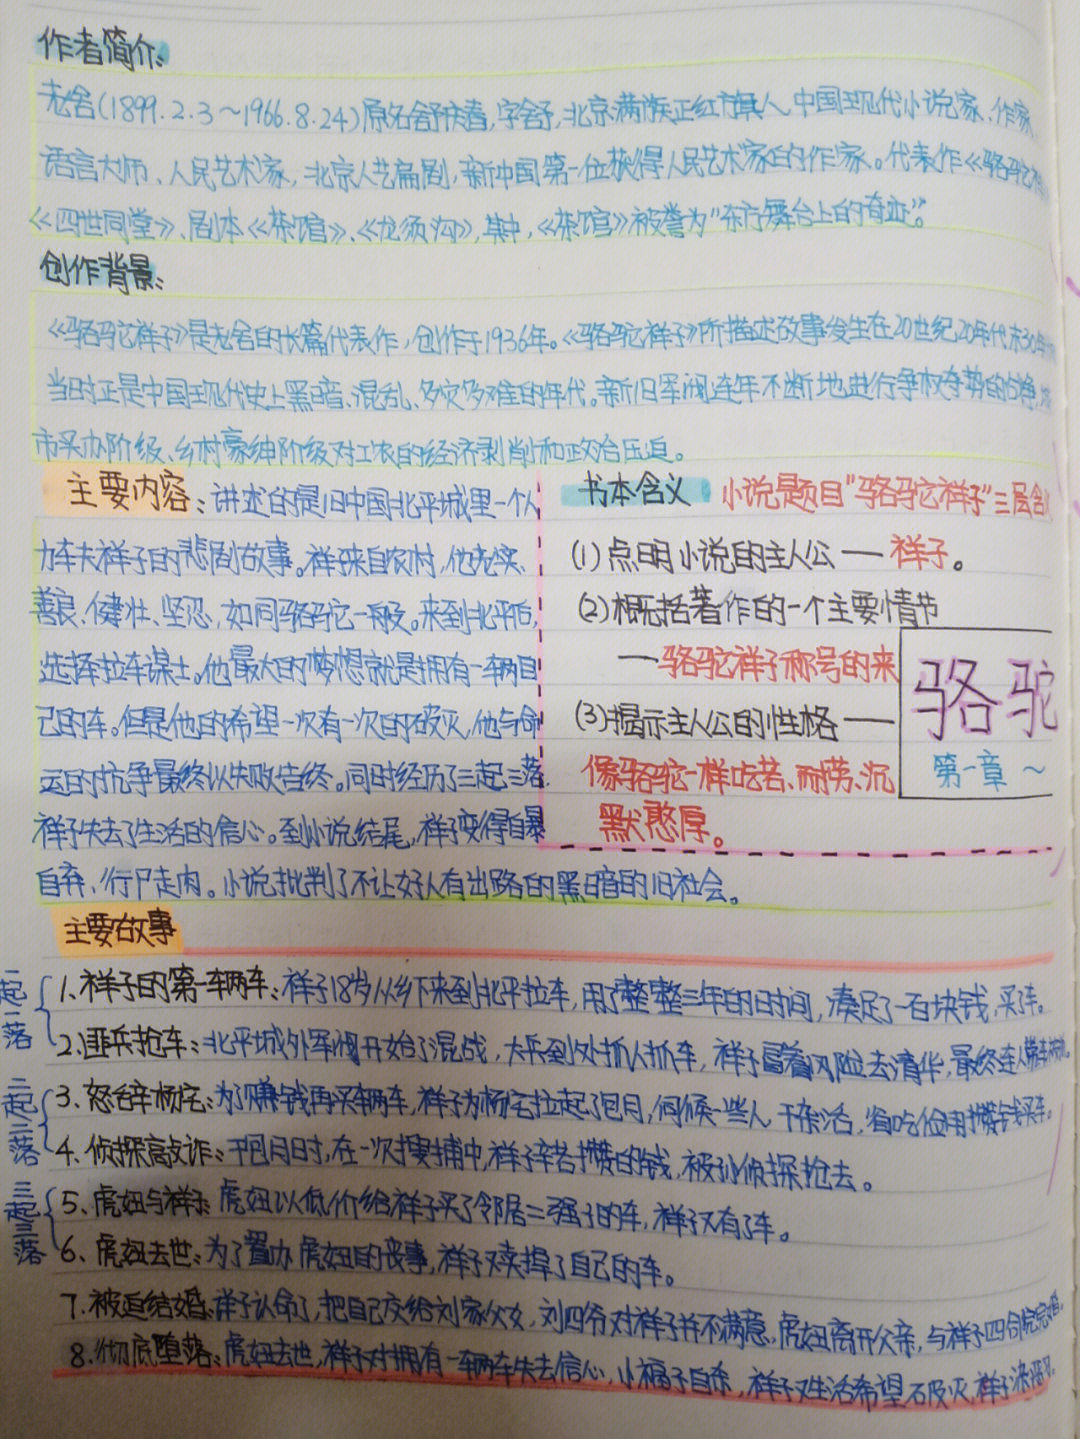 作者简介:
老舍(1899.2.3～1966.8.24)原名舒庆春,字舍予,北京满族正红旗人,中国现代小说家、作家、
语言大师、人民艺术家,北京人艺编剧,新中国第一位获得人民艺术家的作家。代表作《骆驼
《四世同堂》、剧本《茶馆》、《龙须沟》,其中,《茶馆》被誉为"东方舞台上的奇迹"。
创作背景:
《骆驼祥子》是老舍的长篇代表作,创作于1936年。《骆驼祥子》所描述故事发生在20世纪20年代末30年
当时正是中国现代史上黑暗、混乱、多灾多难的年代。新旧军阀连年不断地进行争权夺势的
市买办阶级、乡村豪绅阶级对工农的经济剥削和政治压迫。
主要内容:讲述的是旧中国北平城里一个人
力车夫祥子的悲剧故事。祥子来自农村,他老实、
善良、健壮、坚忍,如同骆驼一般。来到北平后,
选择拉车谋生。他最大的梦想就是拥有一辆自
己的车。但是他的希望一次有一次的破灭,他与命
运的抗争最终以失败告终。同时经历了三起三落.
祥子失去了生活的信心。到小说结尾,祥子变得自暴
自弃、行尸走肉。小说批判了不让好人有出路的黑暗的旧社会。
书本含义 小说题目"骆驼祥子"三层含
(1)点明小说的主人公——祥子。
(2)概括著作的一个主要情节
——骆驼祥子称号的来
(3)揭示主人公的性格——
像骆驼一样吃苦、耐劳、沉
默憨厚。
骆驼
第一章～
主要故事
一起一落
1、祥子的第一辆车:祥子18岁从乡下来到北平拉车,用了整整三年的时间,凑足了一百块钱,买了车。
2.匪兵抢车:北平城外军阀开始了混战,大兵到处抓人抓车,祥子冒着风险去清华,最终连人带车
二起二落
3、怒辞杨宅:为了赚钱再买辆车,祥子为杨宅拉起了包月,伺候一些人,干杂活,省吃俭用攒钱买车。
4、侦探敲诈:干包月时,在一次搜捕中,祥子辛苦攒的钱,被孙侦探抢去。
三起三落
5、虎妞与祥子:虎妞以低价给祥子买了邻居二强子的车,祥子又有了车。
6、虎妞去世:为了置办虎妞的丧事,祥子又卖掉了自己的车。
7.被迫结婚:祥子认命了,把自己交给刘家父女,刘四爷对祥子并不满意,虎妞离开父亲,与祥子四合院完婚。
8.彻底堕落:虎妞去世,祥子对拥有一辆车失去信心,小福子自杀,祥子对生活希望破灭,祥子